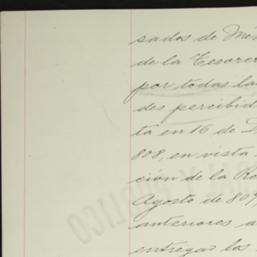 sados de Mé
de la Tesorer
por todas la
des percibid
ta en 16 de
808, en vista
cion de la
Agosto de 809
anteriores a
entregas los
PUBLICO